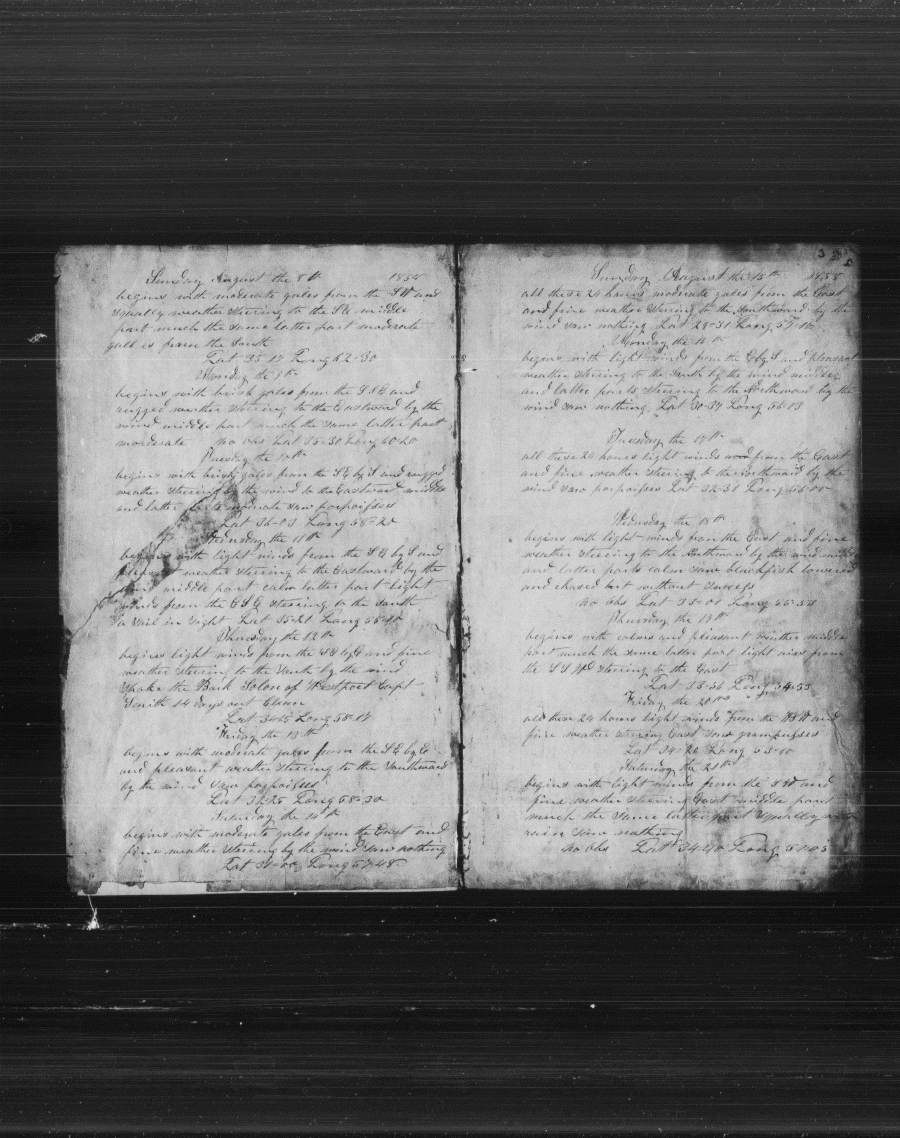 Sunday August the 8th 1858
begins with moderate gales from the SW and
squally weather steering to the SE middle
part much the same latter part moderate
gales from the South
Lat 35-17 Long 62-30
Monday the 9th
begins with brisk gales from the SSE and
rugged weather steering to the Eastward by the
wind middle part much the same latter part
moarderate no obs Lat 35-30 Long 60-20
Tuesday the 10th
begins with brisk gales from the SE by S and rugged
weather steering by the wind to the Eastward middle
and latter parts moderate saw porpoisses
Lat 36-03 Long 58-20
Wednesday the 11th
begins with light winds from the SE by S and
pleasant weather steering to the Eastward by the
wind middle part calm latter part light
winds from the ESE steering to the South
a Sail in sight Lat 35-21 Long 58-40
Thursday the 12th
begins light winds from the SE by E and fine
weather steering to the South by the wind
Spoke the Bark Solon of Westport Capt
Smith 14 days out Clean
Lat 34-45 Long 58-17
Friday the 13th
begins with moderate gales from the SE by E
and pleasant weather steering to the Southward
by the wind saw porpoisses
Lat 32-25 Long 58-30
Saturday the 14th
begins with moderate gales from the East and
fine weather steering by the wind saw nothing
Lat 31-00 Long 57-48
Sunday August the 15th 1858
all these 24 hours moderate gales from the East
and fine weather steering to the Southward by the
wind saw nothing Lat 28-31 Long 57-16
Monday the 16th
begins with light winds from the E by S and pleasant
weather steering to the South by the wind middle
and latter parts steering to the Northward by the
wind saw nothing Lat 30-37 Long 56-13
Tuesday the 17th
all these 24 hours light winds from the East
and fine weather steering to the Northward by the
wind saw porpoisses Lat 32-31 Long 56-00
Wednesday the 18th
begins with light winds from the East and fine
weather steering to the Northward by the wind middle
and latter parts calm saw blackfish lowered
and chased but without sucsess
no obs Lat 33-00 Long 55-54
Thursday the 19th
begins with calms and pleasant weather middle
part much the same latter part light airs from
the SSW steering to the East
Lat 33-36 Long 54-55
Friday the 20th
all these 24 hours light winds from the WSW and
fine weather steering East saw grampusses
Lat 34-20 Long 53-10
Saturday the 21st
begins with light winds from the SW and
fine weather steering East middle part
much the same latter part squally and
rain saw noathing
no obs Lat 34-40 Long 51-05